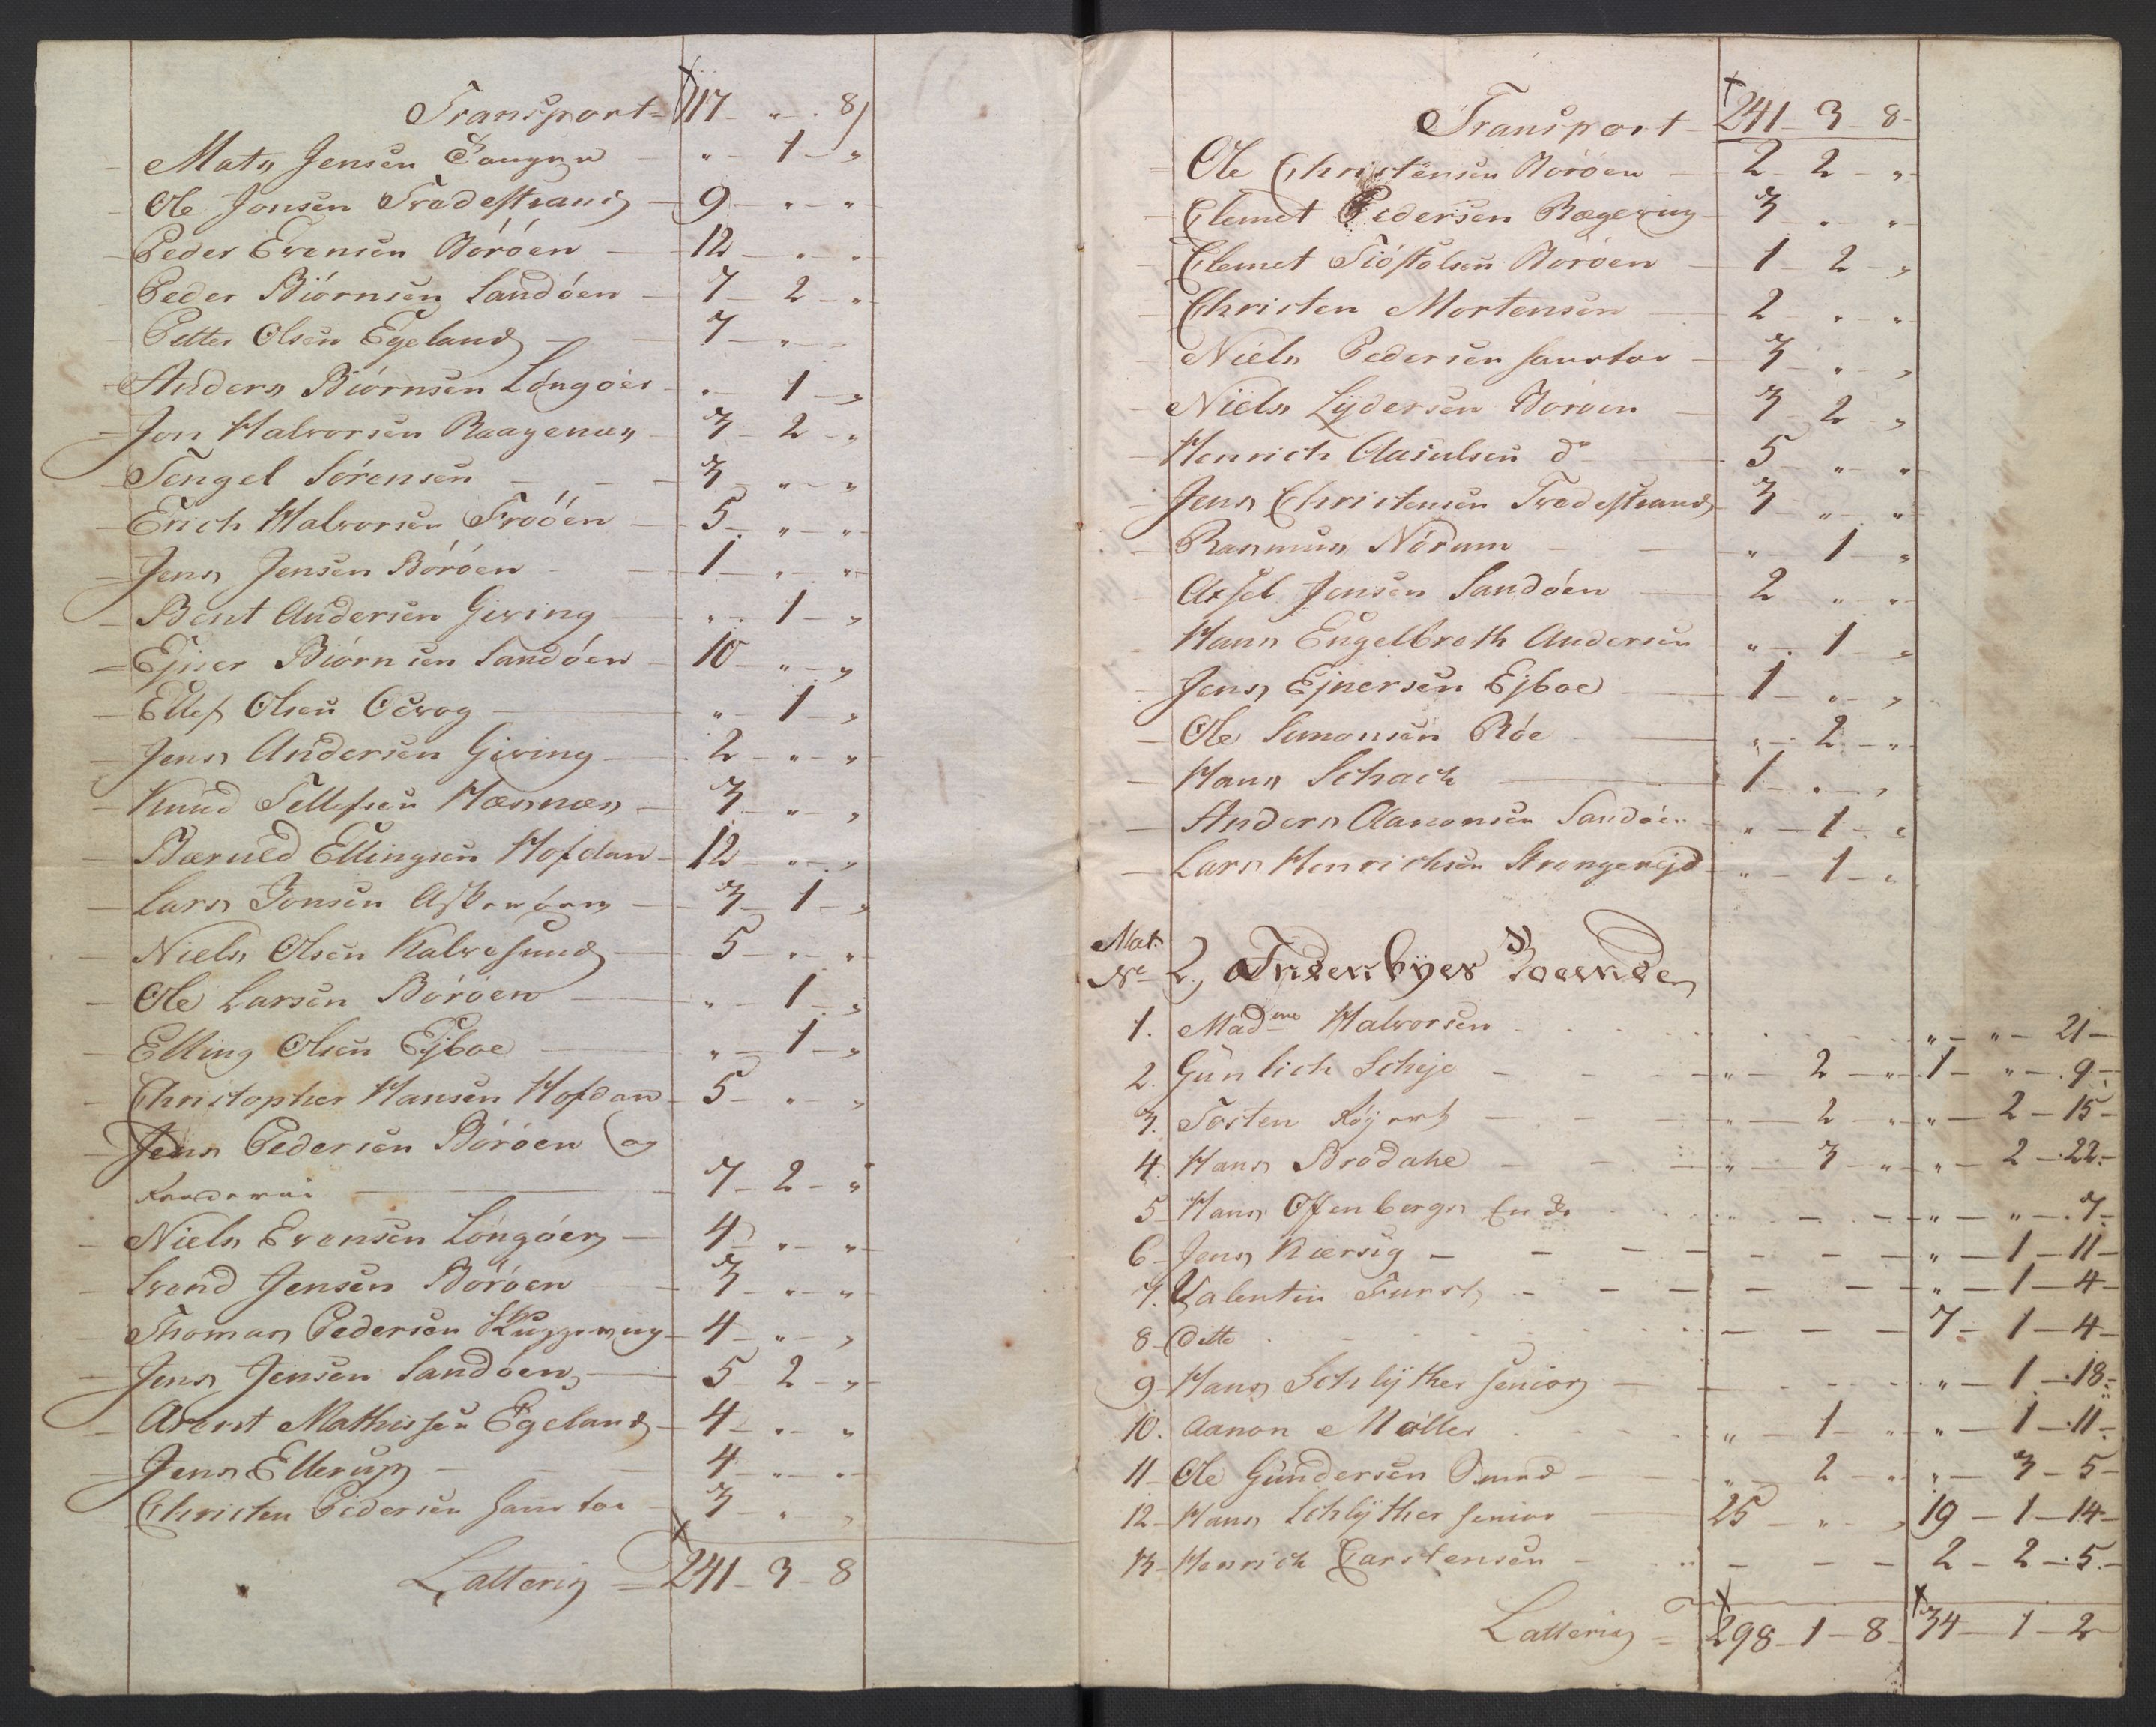 Transport 117 - " - 8
Mats Jensen - " - 1 - "
Ole Jonsen Tvedestrand - 9 - " - "
Peder Evensen Böröen - 12 - " - "
Peder Biörnsen Sandöen - 7 - 2 - "
Petter Olsen Egeland - 7 - " - "
Anders Biörnsen Löngöer - " - 1 - "
Jon Halvorsen Raagenæs - 3 - 2 - "
Tengel Sörensen - - - 3 - " - "
Erich Halvorsen Froöen - 5 - " - "
Jens Jensen Böröen - 1 - " - "
Bent Andersen Giving - " - 1 - "
Ejner Biörnsen Sandöen - 10 - " - "
Ellef Olsen - " - 1 - "
Jens Andersen Giving - 2 - " - "
Knud Tellefsen Hæsnæs - 3 - " - "
Bærned Ellingsen Hofdan - 12 - " - "
Lars Jonsen - 3 - 1 - "
Niels Olsen Kalvesund - 5 - " - "
Ole Larsen Böröen - " - 1 - "
Elling Olsen Ejboe - " - 1 - "
Christopher Hansen Hofdan - 5 - " - "
Jens Pedersen Böröen og
- 7 - 2 - "
Niels Evensen Löngöer - 4 - " - "
Svend Jensen Böröen - 3 - " - "
Thomas Pedersen - 4 - " - "
Jens Jensen Sandöen - 5 - 2 - "
Arent Mathissen Egeland - 4 - " - "
Jens Ellerup - 4 - " - "
Christen Pedersen - 3 - " - "
Latterig = 241 - 3 - 8
Transport - 241 - 3 - 8
Ole Christensen Böröen - 2 - 2 - "
Clemet Pedersen - 3 - " - "
Clemet Tiöstolsen Böröen - 1 - 2 - "
Christen Mortensen - 2 - " - "
Niels Pedersen - 3 - " - "
Niels Lÿdersen Böröen - 3 - 2 - "
Henrich Aasulsen do - 5 - " - "
Jens Christensen Tvedestrand - 3 - " - "
Rasmus Nördum - " - 1 - "
Axsel Jensen Sandöen - 2 - " - "
Hans Engelbreth Andersen - " - 1 - "
Jens Ejnersen Ejboe - 1 - " - "
Ole Simonsen Röe - " - 2 - "
Hans Schach - 1 - " - "
Anders Aanonsen Sandöen - " - 1 - "
Lars Henrichsen Strengereid - " - 1 - "
Mat:
No 2, Inderbÿes Roeende
1. Madme Halvorsen - " - " - 21 -
2. Günlich Scheje - " - 2 - " - 1 - " - 9 -
3. Tosten - " - 2 - " - " - 2 - 15 -
4. Hans Brödahe - " - 3 - " - " - 2 - 22 -
5 - Hans Offenbergs Enke - " - " - 7 -
6 - Jens Kiærsig - " - 1 - 11 -
7. Valentin Furst - " - 1 - 4 -
8 - ditto - 7 - 1 - 4 -
9 - Hans Schlÿther senior - " - 1 - 18 -
10. Aanon Möller - " - 1 - " - " - 1 - 11 -
11 - Ole Gundersen - " - 2 - " - " - 3 - 5 -
12 - Hans Schlÿther senior - 25 - " - " 19 - 1 - 14 -
13 - Henrich Carstensen - 2 - 2 - 5 -
Latterig = 298 - 1 - 8 34 - 1 - 2